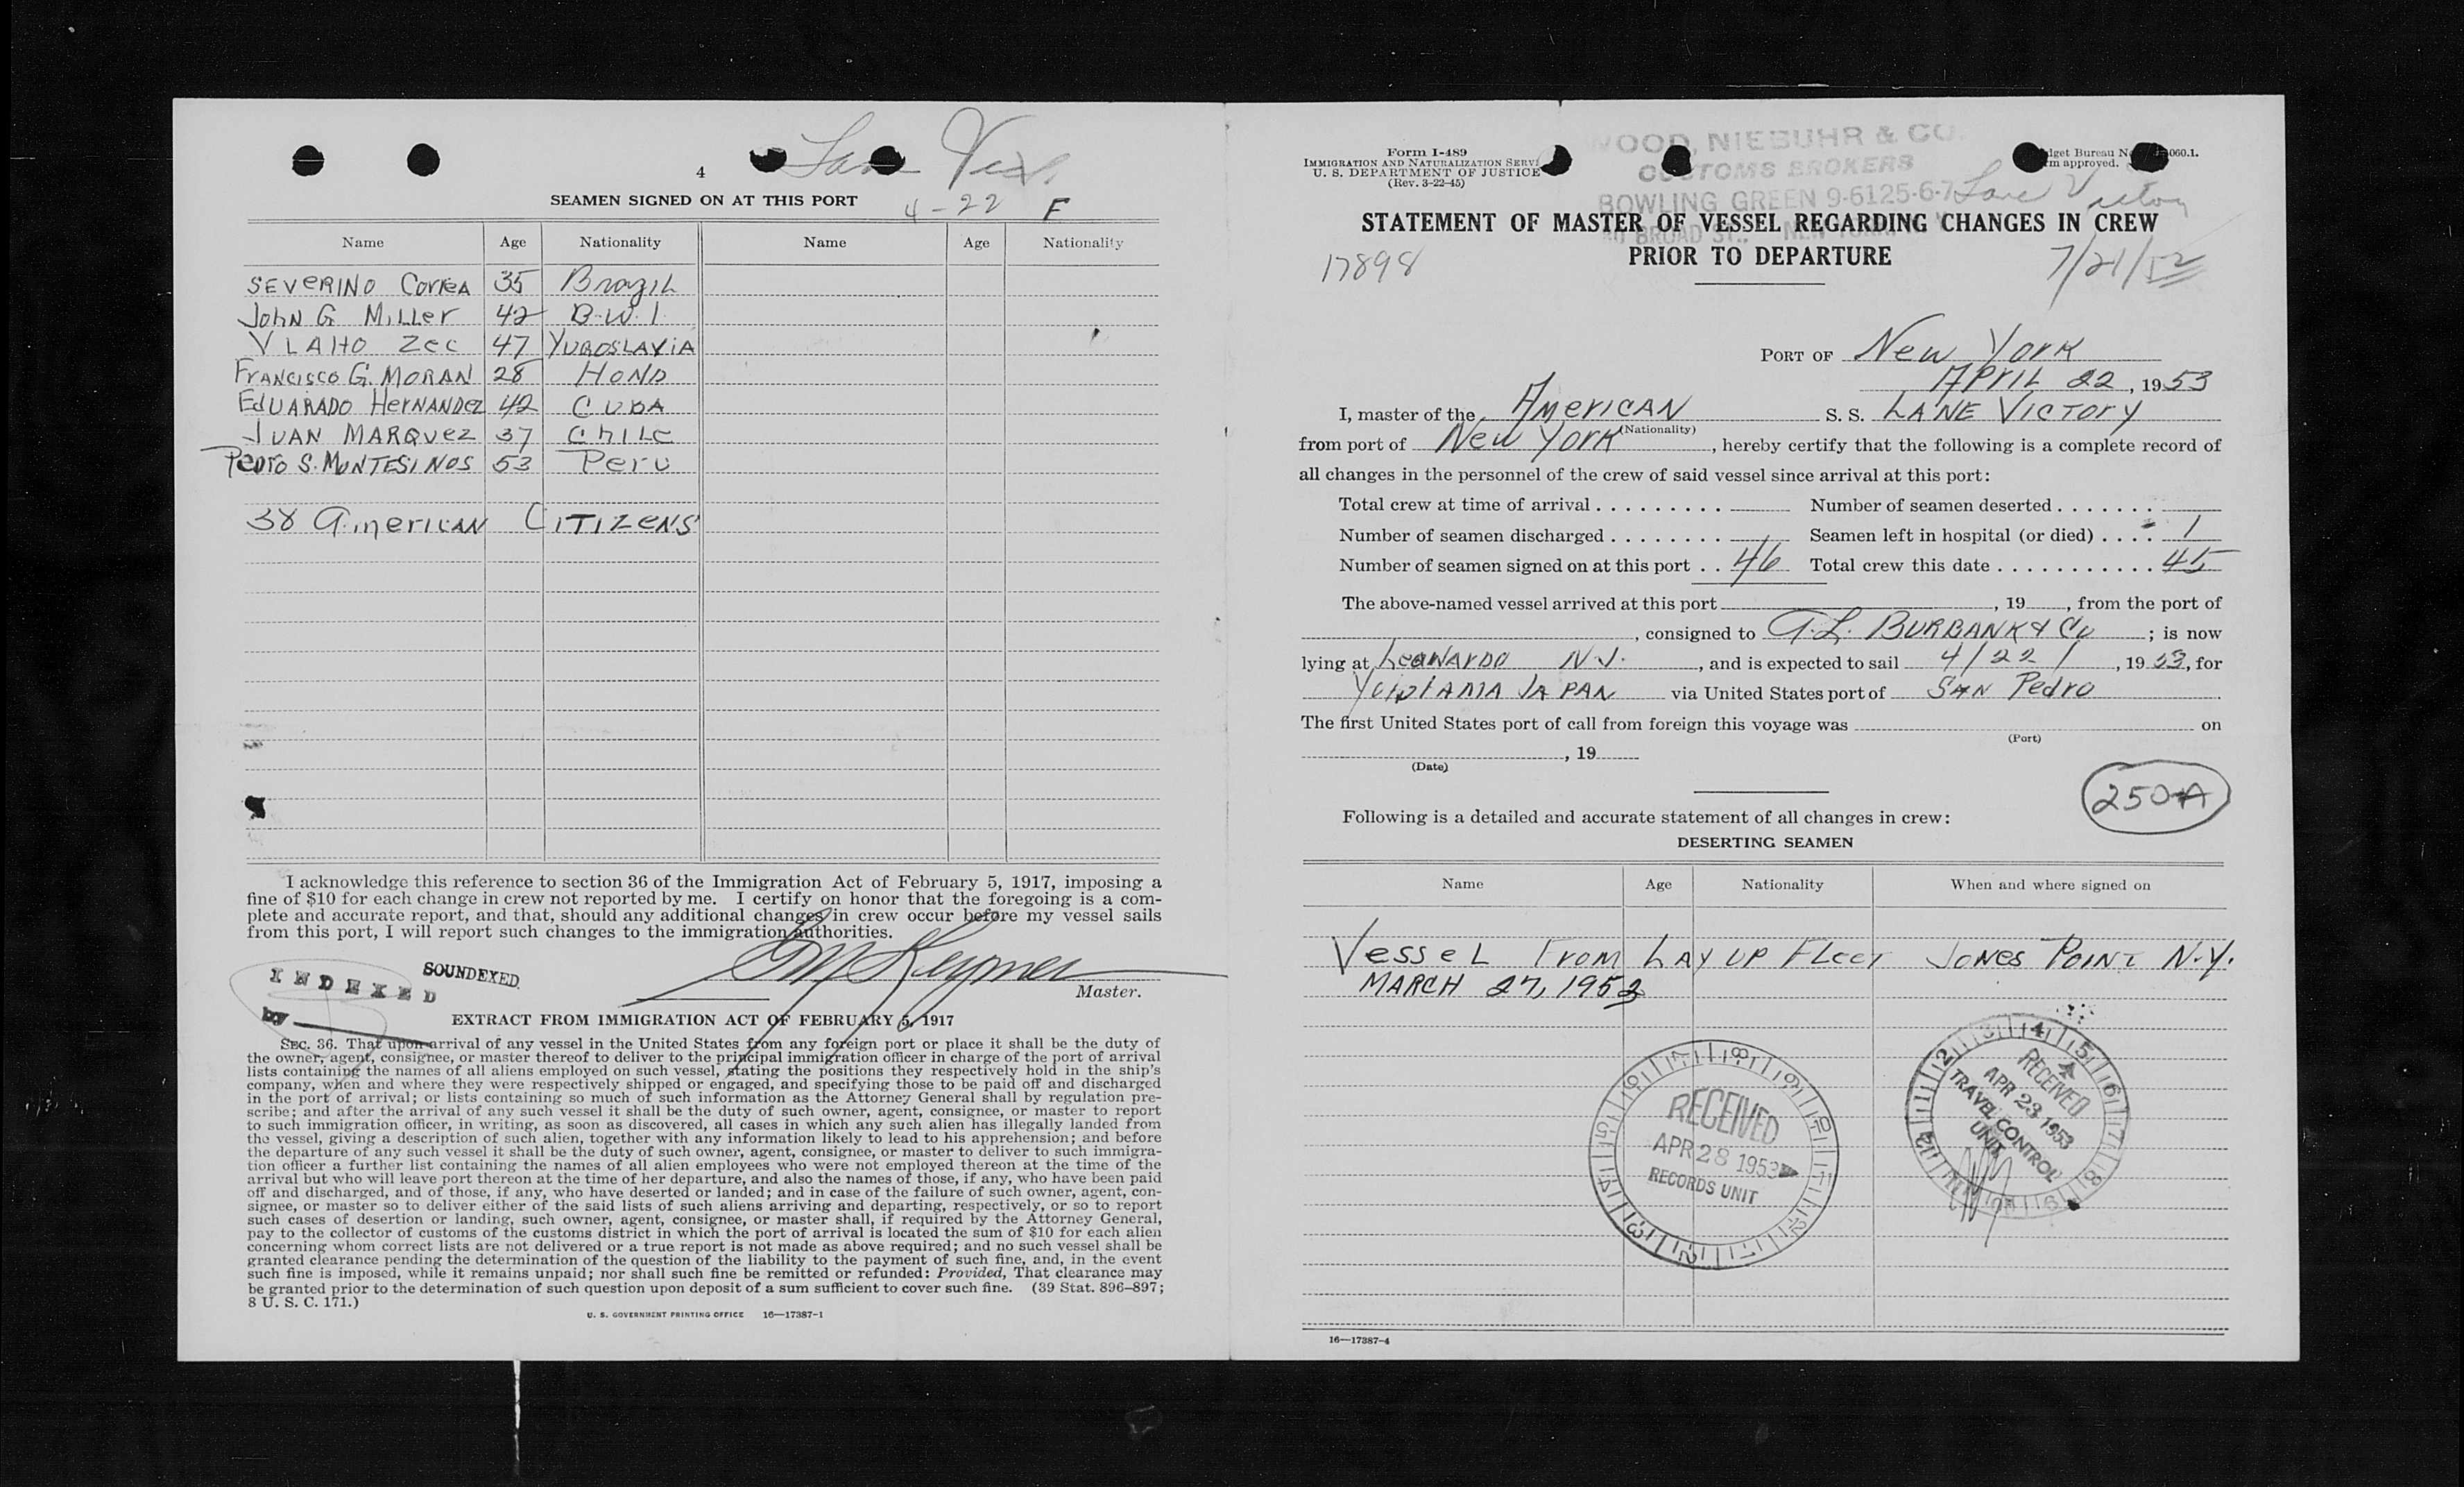 Lane Vic.
4
SEAMEN SIGNED ON AT THIS PORT
4-22 F
Name Age Nationality Name Age Nationality
SEVERINO CorreA 35 BrazIL
JohN G MILLer 42 B.W.I.
VLAHO Zec 47 YUGOSLAViA
FrANCISCO G. MORAN 28 HOND
EdUARADO HerNANDez 42 CUBA
JUAN MARQUez 37 ChILe
Pedro S. MONTESINOS 53 Peru
38 AmericAN CITIZeNS
I acknowledge this reference to section 36 of the Immigration Act of February 5, 1917, imposing a
fine of $10 for each change in crew not reported by me. I certify on honor that the foregoing is a com-
plete and accurate report, and that, should any additional changes in crew occur before my vessel sails
from this port, I will report such changes to the immigration authorities.
INDEXED
by
SOUNDEXED
Master.
EXTRACT FROM IMMIGRATION ACT OF FEBRUARY 5, 1917
SEC. 36. That upon arrival of any vessel in the United States from any foreign port or place it shall be the duty of
the owner, agent, consignee, or master thereof to deliver to the principal immigration officer in charge of the port of arrival
lists containing the names of all aliens employed on such vessel, stating the positions they respectively hold in the ship's
company, when and where they were respectively shipped or engaged, and specifying those to be paid off and discharged
in the port of arrival; or lists containing so much of such information as the Attorney General shall by regulation pre-
scribe; and after the arrival of any such vessel it shall be the duty of such owner, agent, consignee, or master to report
to such immigration officer, in writing, as soon as discovered, all cases in which any such alien has illegally landed from
the vessel, giving a description of such alien, together with any information likely to lead to his apprehension; and before
the departure of any such vessel it shall be the duty of such owner, agent, consignee, or master to deliver to such immigra-
tion officer a further list containing the names of all alien employees who were not employed thereon at the time of the
arrival but who will leave port thereon at the time of her departure, and also the names of those, if any, who have been paid
off and discharged, and of those, if any, who have deserted or landed; and in case of the failure of such owner, agent, con-
signee, or master so to deliver either of the said lists of such aliens arriving and departing, respectively, or so to report
such cases of desertion or landing, such owner, agent, consignee, or master shall, if required by the Attorney General,
pay to the collector of customs of the customs district in which the port of arrival is located the sum of $10 for each alien
concerning whom correct lists are not delivered or a true report is not made as above required; and no such vessel shall be
granted clearance pending the determination of the question of the liability to the payment of such fine, and, in the event
such fine is imposed, while it remains unpaid; nor shall such fine be remitted or refunded: Provided, That clearance may
be granted prior to the determination of such question upon deposit of a sum sufficient to cover such fine. (39 Stat. 896–897;
8 U. S. C. 171.)
U. S. GOVERNMENT PRINTING OFFICE 16—17387-1
Form I-489
IMMIGRATION AND NATURALIZATION
U. S. DEPARTMENT OF JUSTICE
(Rev. 3-22-45)
WOOD, NIEBUHR & CO.
CUSTOMS BROKERS
BOWLING GREEN 9-6125-6-7
BROAD ST., NEW YORK
Lane Victory
STATEMENT OF MASTER OF VESSEL REGARDING CHANGES IN CREW
PRIOR TO DEPARTURE
17898
7/21/52
PORT OF New York
APriL 22, 1953
I, master of the AmericAN S. S. LANE VicTory
(Nationality)
from port of New York, hereby certify that the following is a complete record of
all changes in the personnel of the crew of said vessel since arrival at this port:
Total crew at time of arrival . . . . . . . . . Number of seamen deserted . . . . . . .
Number of seamen discharged . . . . . . . . Seamen left in hospital (or died) . . . . 1
Number of seamen signed on at this port . . 46 Total crew this date . . . . . . . . . . . 45
The above-named vessel arrived at this port , 19 , from the port of
, consigned to A.L. BURBANK & Co ; is now
lying at LeoNArdo N.J. , and is expected to sail 4/22/ , 1953, for
JAPAN via United States port of SAN Pedro .
The first United States port of call from foreign this voyage was on
(Port)
, 19
(Date)
250-A
Following is a detailed and accurate statement of all changes in crew:
DESERTING SEAMEN
Name Age Nationality When and where signed on
VesseL From LAY UP FLeeT JONes POINT N.Y.
MARCH 27, 1953
RECEIVED
APR 28 1953
RECORDS UNIT
RECEIVED
APR 23 1953
TRAVEL CONTROL
UNIT
16—17387-4